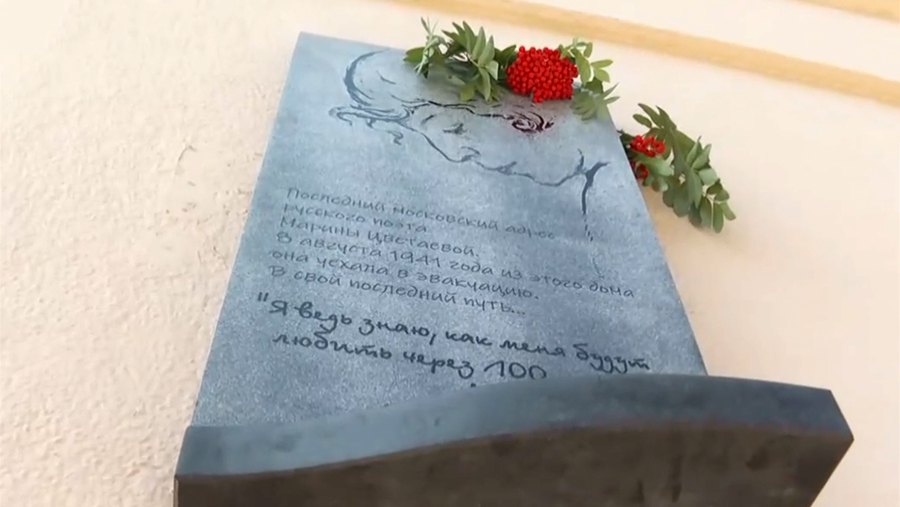 Последний московский адрес
русского поэта
Марины Цветаевой.
8 августа 1941 года из этого дома
она уехала в эвакуацию.
В свой последний путь...
"Я ведь знаю, как меня будут
любить через 100